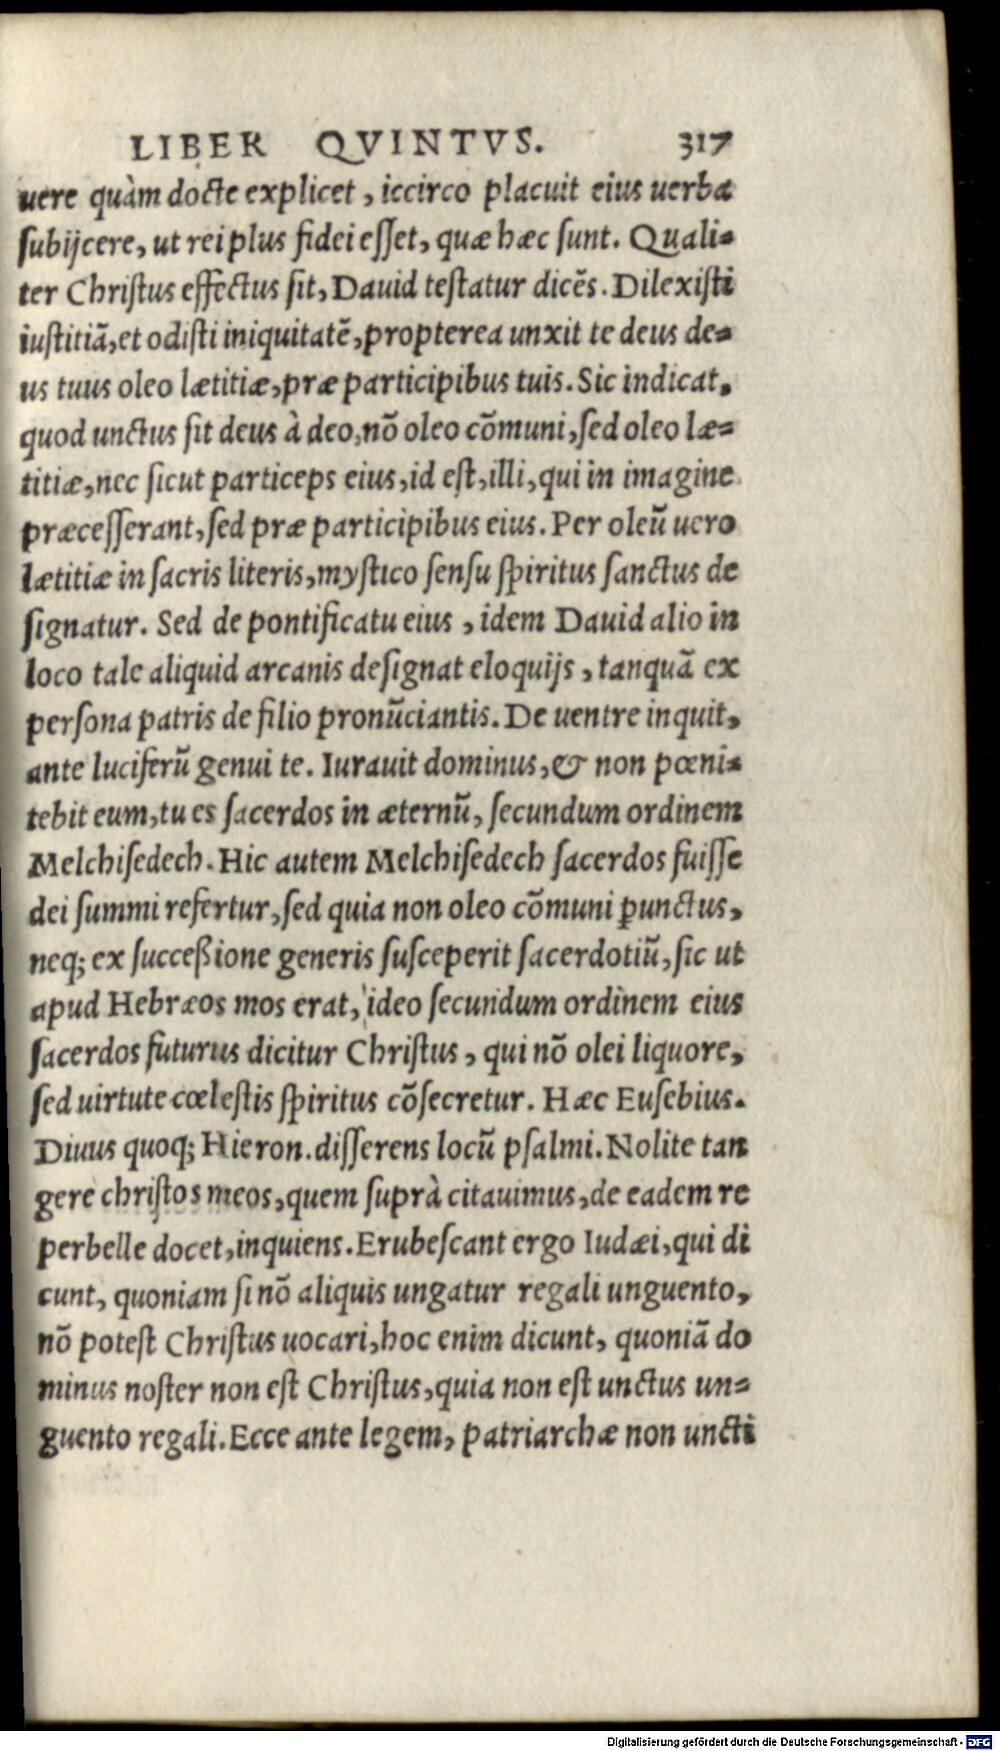 LIBER QVINTVS. 317
uere quàm docte explicet, iccirco placuit eius uerba
ſubijcere, ut rei plus fidei eſſet, quæ hæc ſunt. Quali-
ter Chriſtus effectus ſit, Dauid teſtatur dicẽs. Dilexiſti
iuſtitiã, et odiſti iniquitatẽ, propterea unxit te deus de-
us tuus oleo lætitiæ, præ participibus tuis. Sic indicat,
quod unctus ſit deus à deo, nõ oleo cõmuni, ſed oleo læ-
titiæ, nec ſicut particeps eius, id eſt, illi, qui in imagine
præceſſerant, ſed præ participibus eius. Per oleũ uero
lætitiæ in ſacris literis, myſtico ſenſu ſpiritus ſanctus de
ſignatur. Sed de pontificatu eius, idem Dauid alio in
loco tale aliquid arcanis deſignat eloquijs, tanquã ex
perſona patris de filio pronũciantis. De uentre inquit,
ante luciferũ genui te. Iurauit dominus, & non pœni-
tebit eum, tu es ſacerdos in æternũ, ſecundum ordinem
Melchiſedech. Hic autem Melchiſedech ſacerdos fuiſſe
dei ſummi refertur, ſed quia non oleo cõmuni ꝑunctus,
neq; ex ſucceßione generis ſuſceperit ſacerdotiũ, ſic ut
apud Hebræos mos erat, ideo ſecundum ordinem eius
ſacerdos futurus dicitur Chriſtus, qui nõ olei liquore,
ſed uirtute cœleſtis ſpiritus cõſecretur. Hæc Euſebius.
Diuus quoq; Hieron. diſſerens locũ pſalmi. Nolite tan
gere chriſtos meos, quem ſuprà citauimus, de eadem re
perbelle docet, inquiens. Erubeſcant ergo Iudæi, qui di
cunt, quoniam ſi nõ aliquis ungatur regali unguento,
nõ poteſt Chriſtus uocari, hoc enim dicunt, quoniã do
minus noſter non eſt Chriſtus, quia non eſt unctus un-
guento regali. Ecce ante legem, patriarchæ non uncti
Digitalisierung gefördert durch die Deutsche Forschungsgemeinschaft - DFG